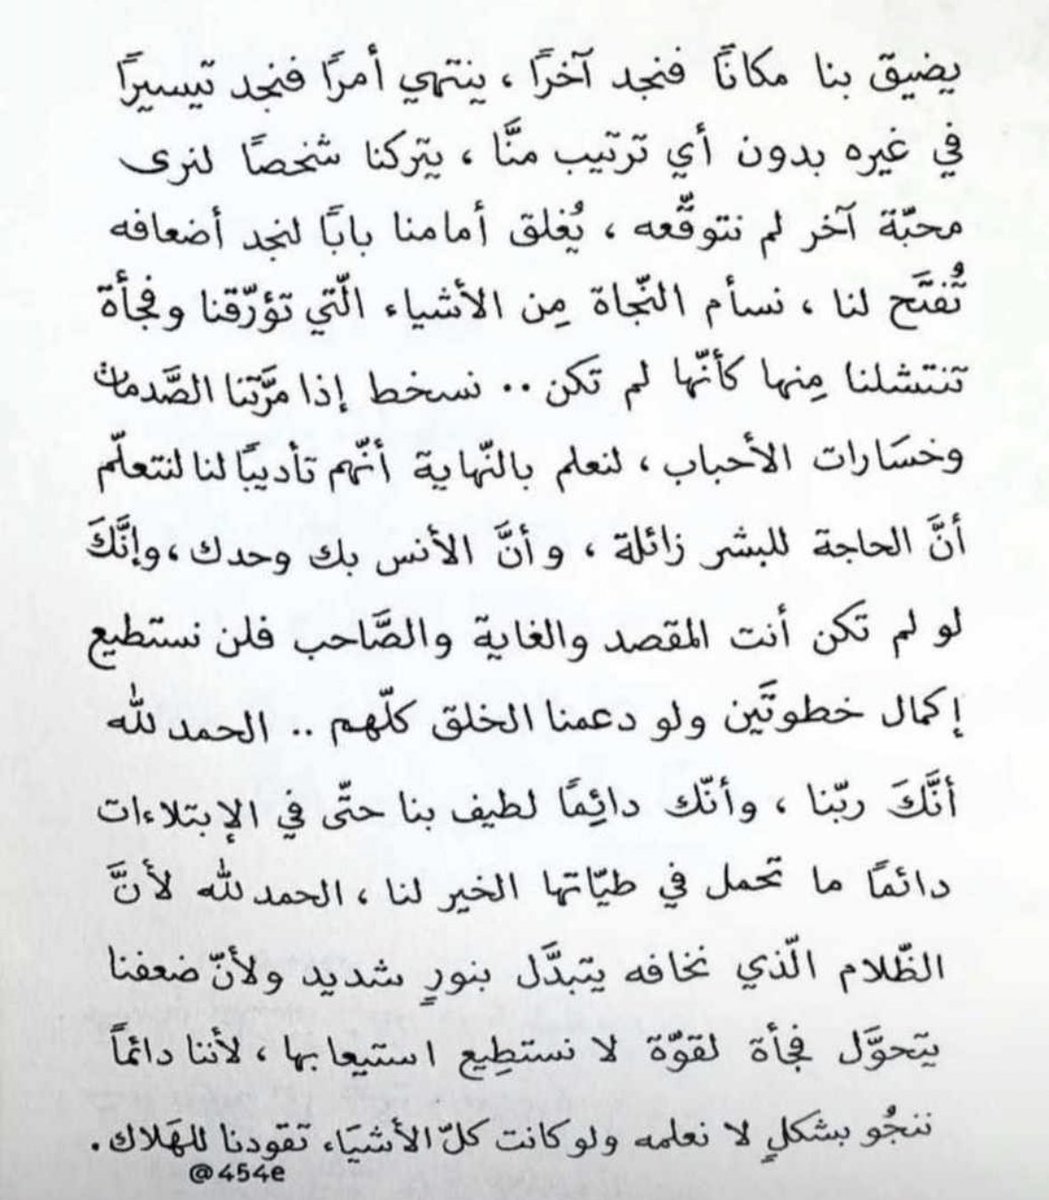 يضيق بنا مكانًا فنجد آخرًا ، ينتهي أمرًا فنجد تيسيرًا
في غيره بدون أي ترتيب منَّا ، يتركنا شخصًا لنرى
محبّة آخر لم نتوقّعه ، يُغلق أمامنا بابًا لنجد أضعافه
تُفتَح لنا ، نسأم النّجاة مِن الأشياء الّتي تؤرّقنا وفجأة
تنتشلنا مِنها كأنّها لم تكن .. نسخط إذا مرَّتنا الصَّدمات
وخسَارات الأحباب ، لنعلم بالنّهاية أنّهم تأديبًا لنا لنتعلّم
أنَّ الحاجة للبشر زائلة ، وأنَّ الأنس بك وحدك ، وإنَّكَ
لو لم تكن أنت المقصد والغاية والصَّاحب فلن نستطيع
إكمال خطوتَين ولو دعمنا الخلق كلّهم .. الحمد لله
أنَّكَ ربّنا ، وأنّك دائِمًا لطيف بنا حتّى في الإبتلاءات
دائمًا ما تحمل في طيّاتها الخير لنا ، الحمد لله لأنَّ
الظّلام الّذي نخافه يتبدَّل بنورٍ شديد ولأنّ ضعفنا
يتحوَّل فجأة لقوّة لا نستطِيع استيعابها ، لأننا دائمًا
ننجُو بشكلٍ لا نعلمه ولو كانت كلّ الأشيَاء تقودنا للهَلاك .
@454e